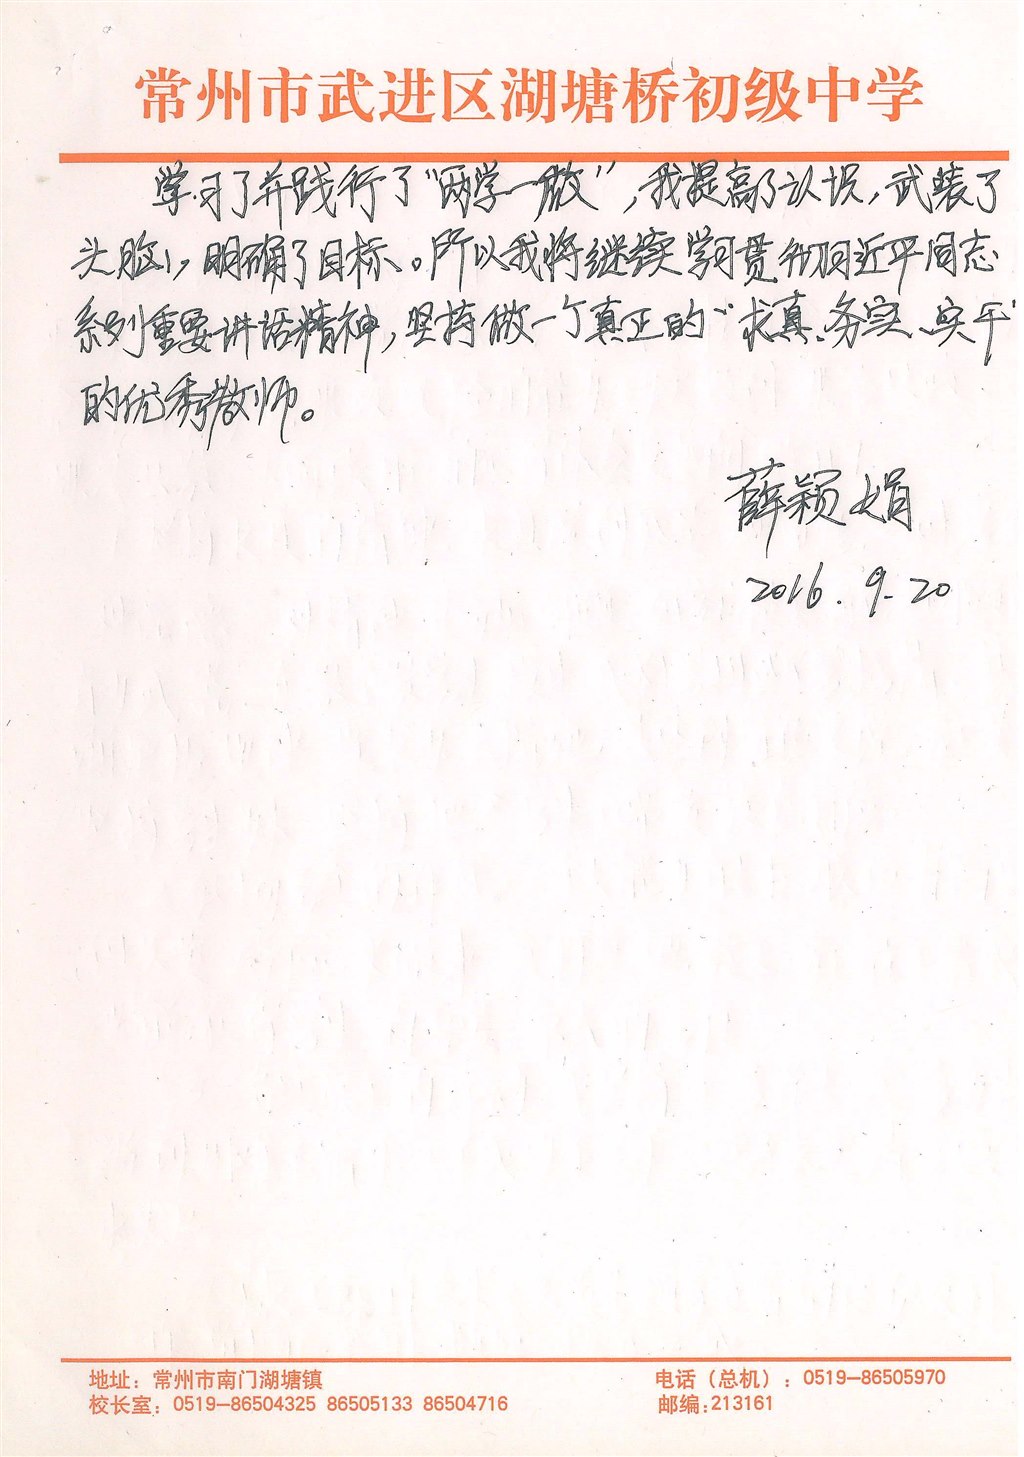 常州市武进区湖塘桥初级中学
学习了并践行了“两学一做”，我提高了认识，武装了
头脑，明确了目标。所以我将继续学习贯彻习近平同志
系列重要讲话精神，坚持做一个真正的“求真、务实、实干”
的优秀教师。
薛颖娟
2016.9.20
地址：常州市南门湖塘镇
电话（总机）：0519—86505970
校长室：0519—86504325 86505133 86504716
邮编:213161